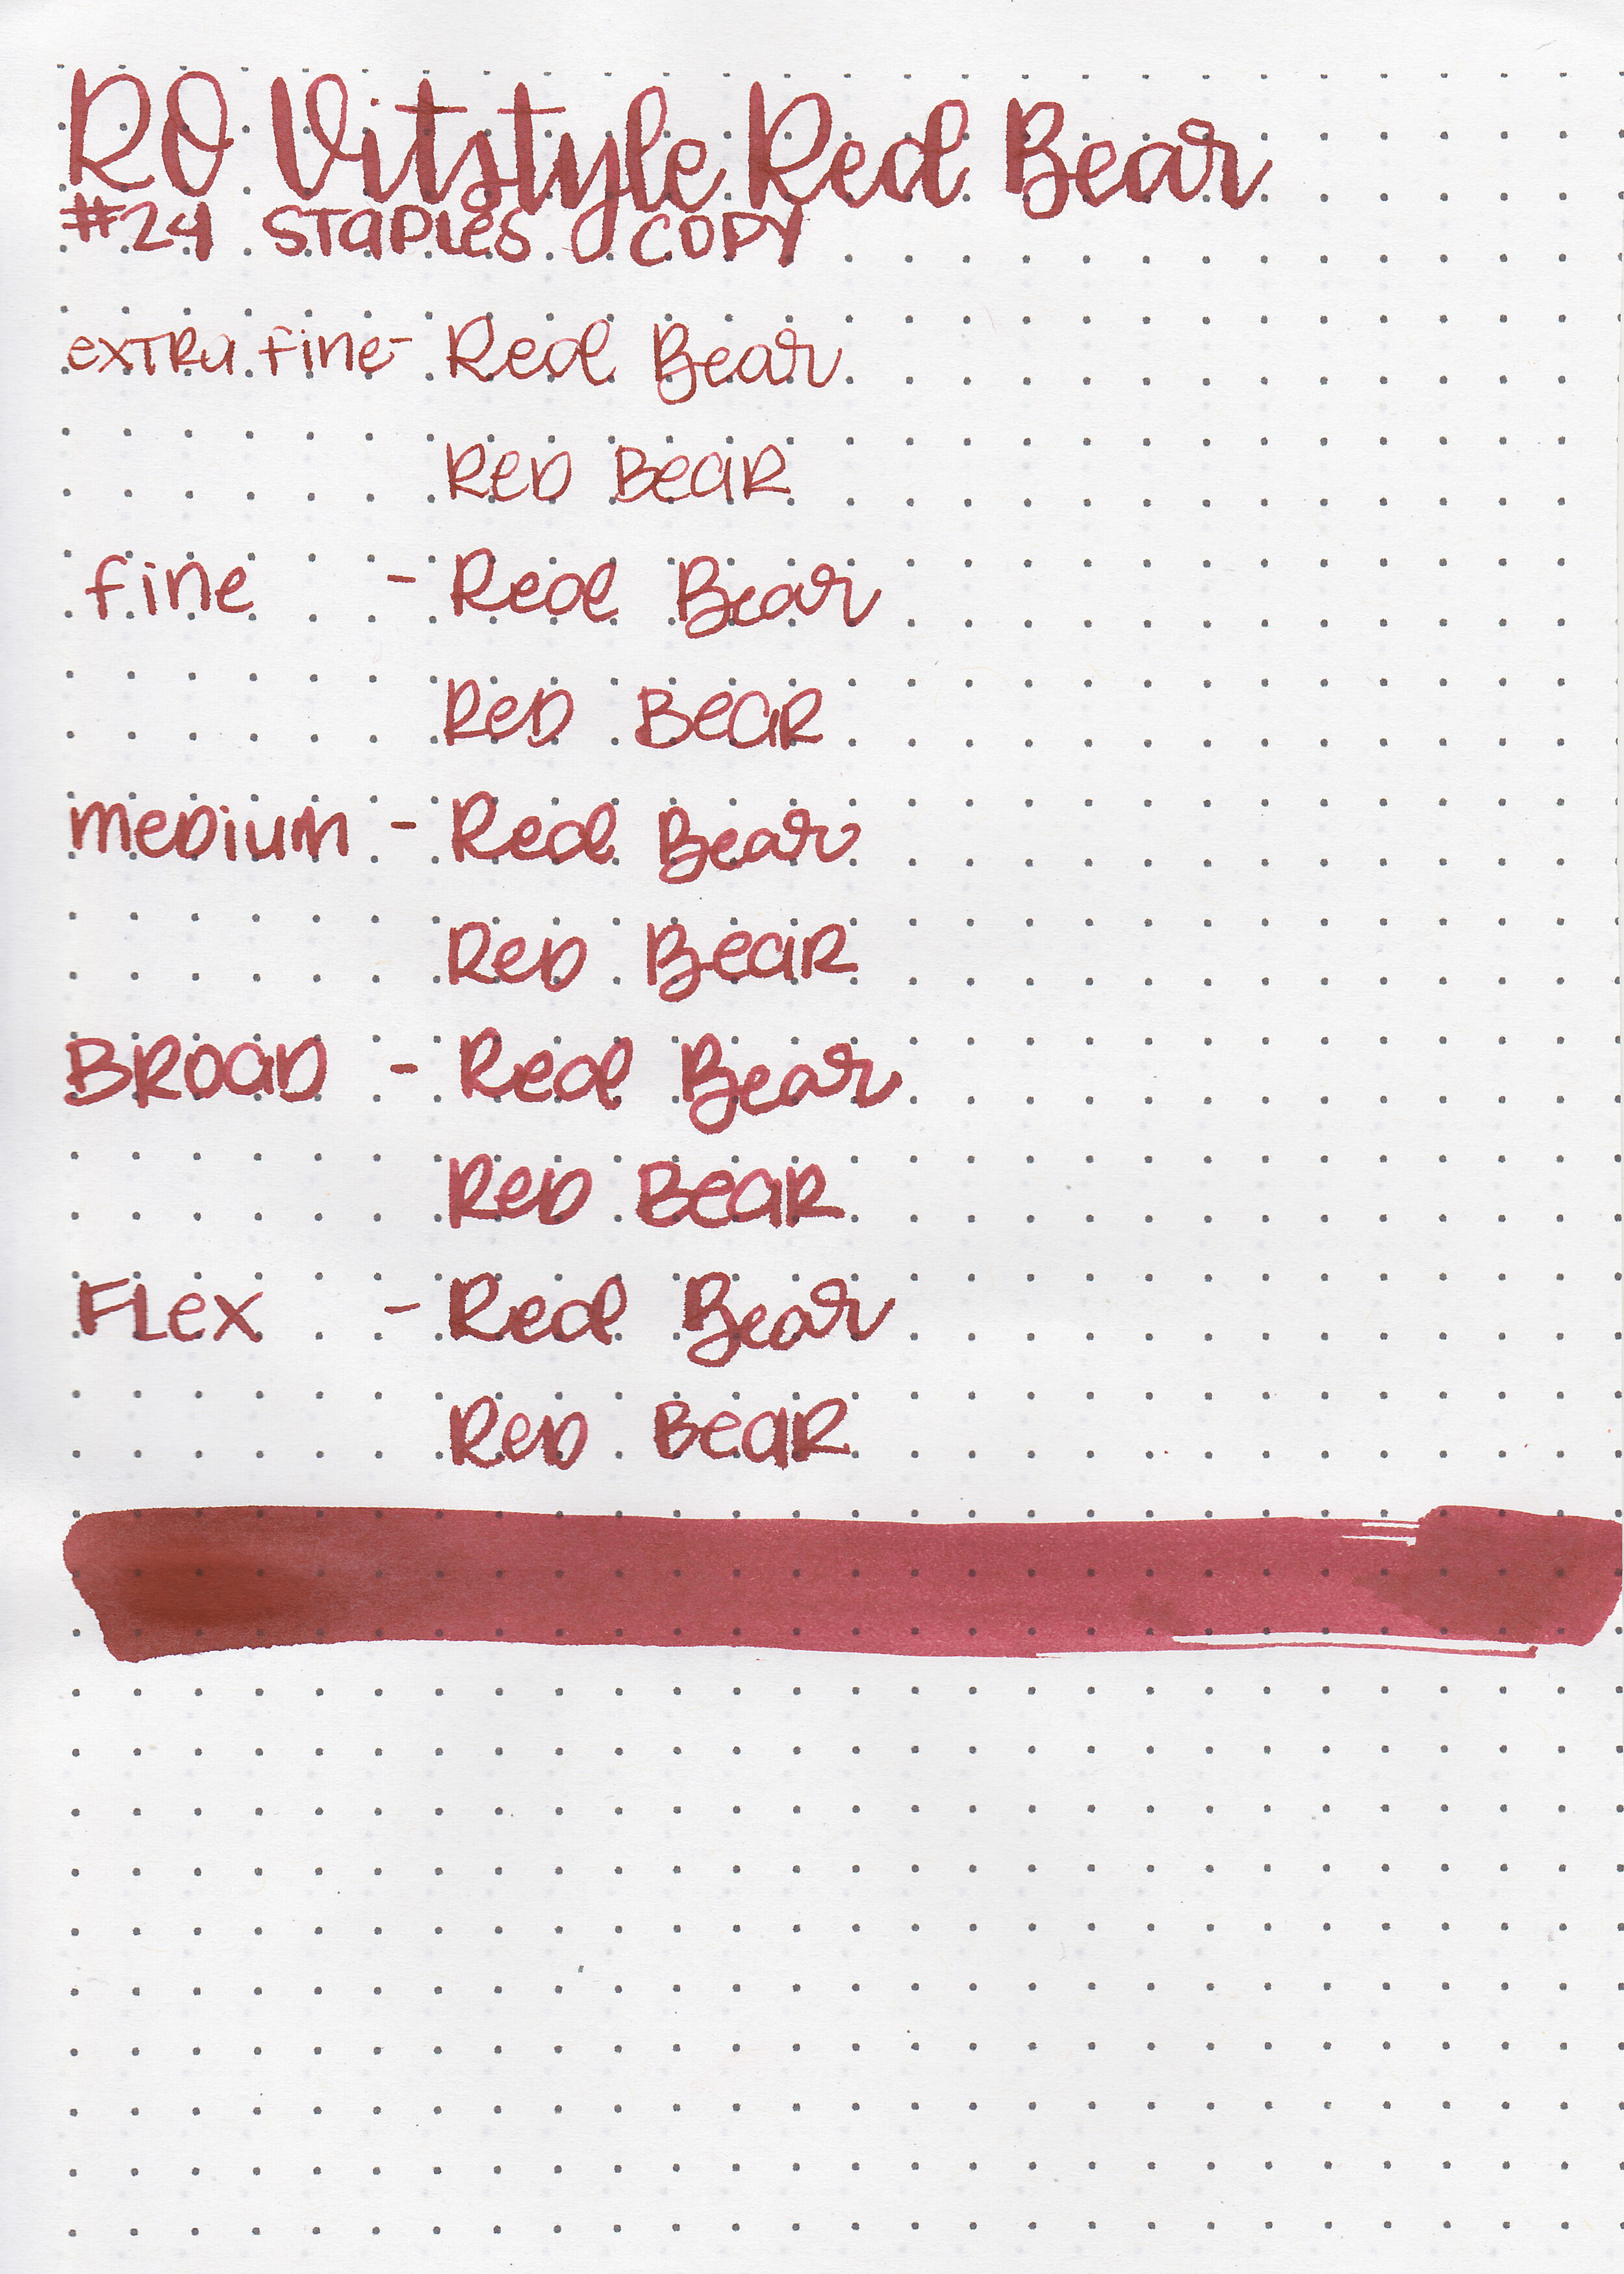 RO Vitstyle Red Bear
#24 STaPLeS COPY
exTRa fine- Red Bear
ReD BeaR
fine - Red Bear
ReD BeaR
meDium - Red Bear
ReD BeaR
BROaD - Red Bear
ReD BeaR
FLex - Red Bear
ReD BeaR